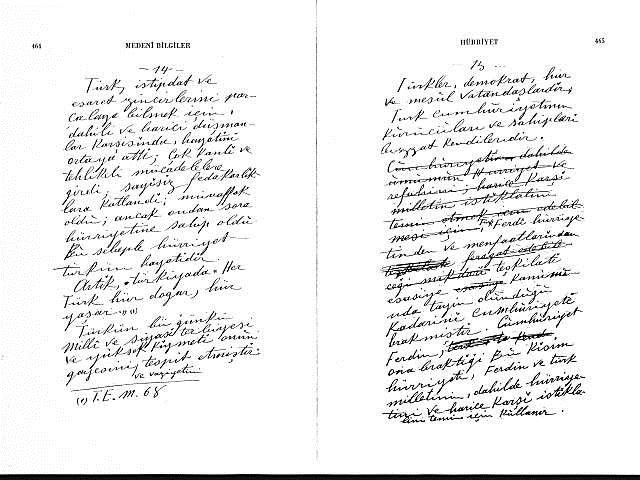 464
MEDENÎ BİLGİLER
— 14 —
Türk, istipdat ve
esaret zincirlerini par-
çalaya bilmek için,
dahilî ve haricî düşman-
lar karşısında, hayatını
ortaya attı; çok kanlı ve
tehlikeli mücadelelere
girdi; sayısız fedakârlık-
lara katlandı; muvaffak
oldu; ancak ondan sora
hürriyetine sahip oldu
Bu sebeple hürriyet
türkün hayatıdır.
Artık, "Türkiyada, Her
Türk hür doğar, hür
yaşar." (1)
Türkün bu günkü
Millî ve siyasî terbiyesi
ve yüksek kıymeti onun
gayesini tespit etmiştir.
ve vaziyetini
(1) T.E.M. 68
HÜRRİYET
465
15
Türkler, demokrat, hür
ve mesul vatandaşlardır,
Türk cumhuriyetinin
kurucuları ve sahipleri
bizzat kendileridir.
Cumhuriyetin dahilde
umumun Hürriyet ve
refahını; harice karşı
milletin istiklâlini
temin etmek
mesi için, Ferdî hürriye-
tinden ve menfaatlarından
feragat edebil-
ceği miktarı teşkilâtı
esasiye kanunu-
nda tayin olunduğu
kadarını cumhuriyete
bırakmıştır. Cumhuriyet
Ferdin,
ona bıraktığı Bu kısım
hürriyeti, Ferdin ve türk
milletinin, dahilde hürriye-
tini ve harice karşı istiklâ-
lini temin için kullanır.